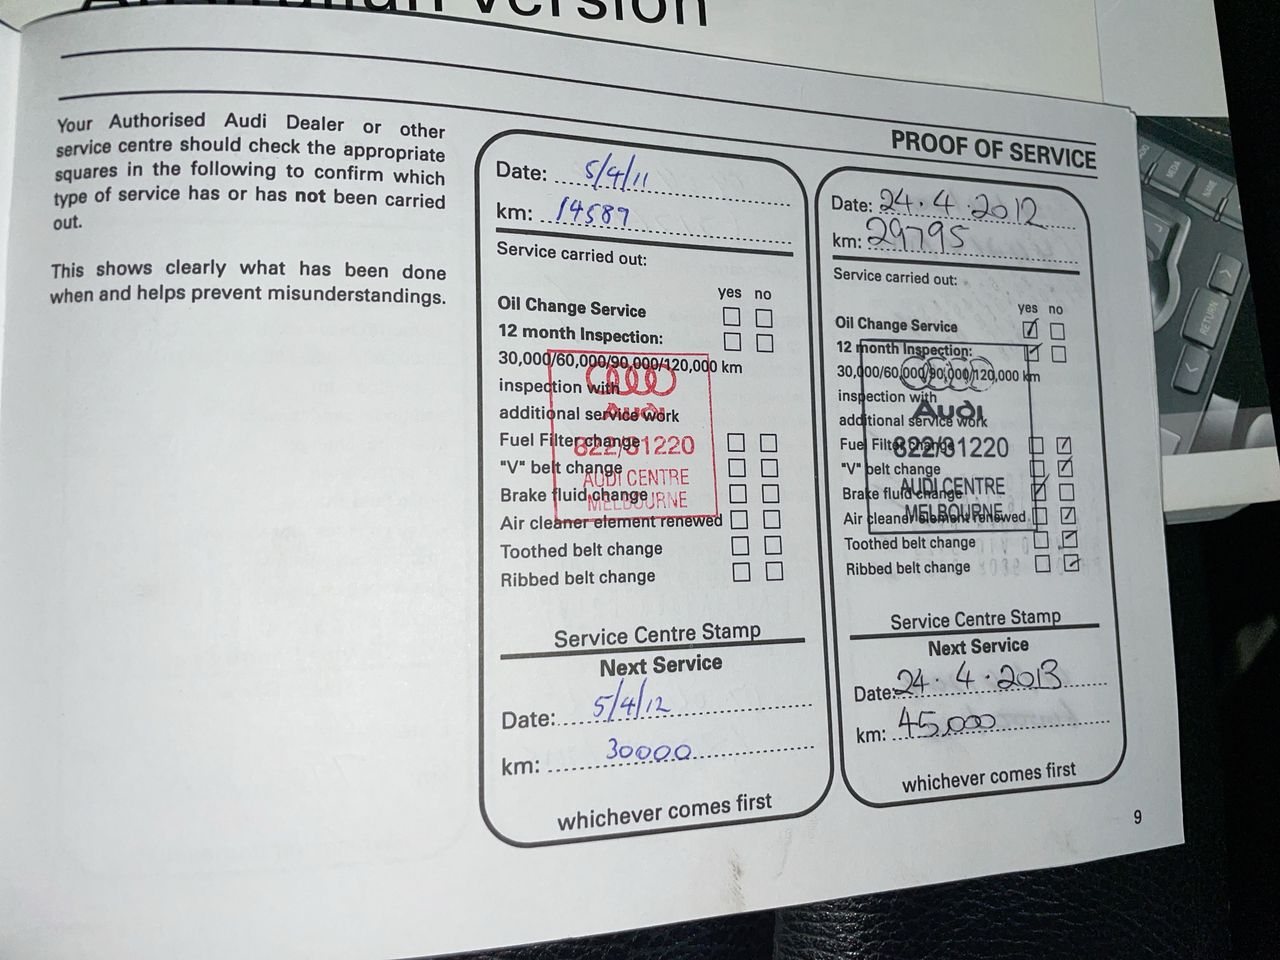 version
Your Authorised Audi Dealer or other
service centre should check the appropriate
squares in the following to confirm which
type of service has or has not been carried
out.
This shows clearly what has been done
when and helps prevent misunderstandings.
PROOF OF SERVICE
Date: 5/4/11
km: 14589
Service carried out:
yes no
Oil Change Service
12 month Inspection:
30,000/60,000/90,000/120,000 km
inspection with
additional service work
Fuel Filter change
"V" belt change
Brake fluid change
Air cleaner element renewed
Toothed belt change
Ribbed belt change
Audi
822/31220
AUDI CENTRE
MELBOURNE
Service Centre Stamp
Next Service
Date: 5/4/12
km: 30000
whichever comes first
Date: 24.4.2012
km: 29795
Service carried out:
yes no
Oil Change Service
12 month Inspection:
30,000/60,000/90,000/120,000 km
inspection with
additional service work
Fuel Filter change
"V" belt change
Brake fluid change
Air cleaner element renewed
Toothed belt change
Ribbed belt change
Audi
822/31220
AUDI CENTRE
MELBOURNE
Service Centre Stamp
Next Service
Date: 24.4.2013
km: 45,000
whichever comes first
9
MEDIA
NAME
RETURN